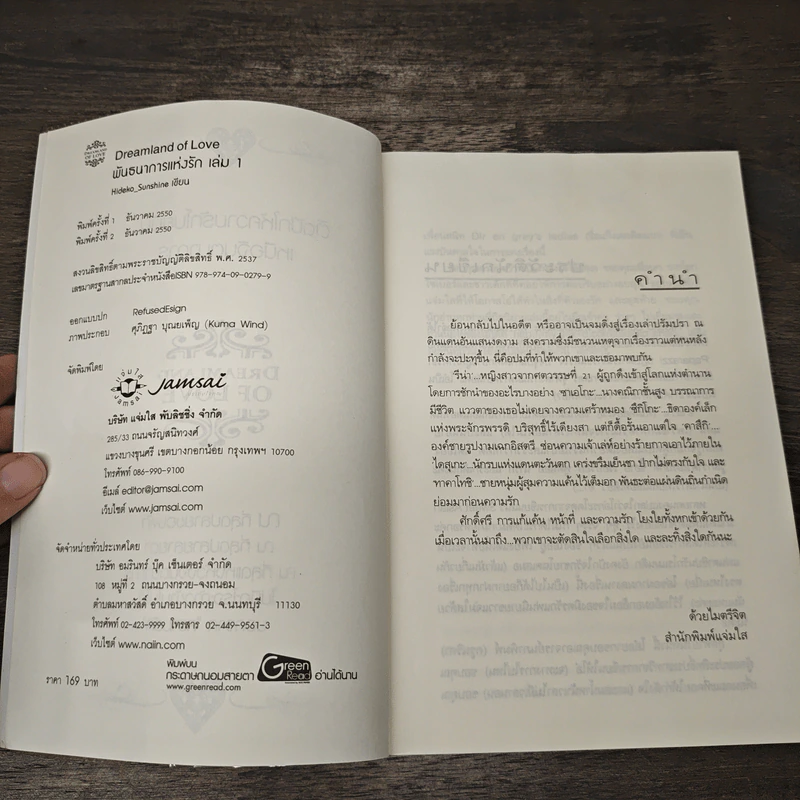 DREAMLAND OF LOVE
Dreamland of Love
พันธนาการแห่งรัก เล่ม 1
Hideko_Sunshine เขียน
พิมพ์ครั้งที่ 1 ธันวาคม 2550
พิมพ์ครั้งที่ 2 ธันวาคม 2550
สงวนลิขสิทธิ์ตามพระราชบัญญัติลิขสิทธิ์ พ.ศ. 2537
เลขมาตรฐานสากลประจำหนังสือISBN 978-974-09-0279-9
ออกแบบปก RefusedEsign
ภาพประกอบ ศุภิฏฐา บุณยเพ็ญ (Kuma Wind)
จัดพิมพ์โดย
แจ่มใส Jamsai
Jamsai
บริษัท แจ่มใส พับลิชชิ่ง จำกัด
285/33 ถนนจรัญสนิทวงศ์
แขวงบางขุนศรี เขตบางกอกน้อย กรุงเทพฯ 10700
โทรศัพท์ 086-990-9100
อีเมล์ editor@jamsai.com
เว็บไซต์ www.jamsai.com
จัดจำหน่ายทั่วประเทศโดย
บริษัท อมรินทร์ บุ๊ค เซ็นเตอร์ จำกัด
108 หมู่ที่ 2 ถนนบางกรวย-จงถนอม
ตำบลมหาสวัสดิ์ อำเภอบางกรวย จ.นนทบุรี 11130
โทรศัพท์ 02-423-9999 โทรสาร 02-449-9561-3
เว็บไซต์ www.naiin.com
ราคา 169 บาท
พิมพ์บน
กระดาษถนอมสายตา Green Read อ่านได้นาน
www.greenread.com
คำนำ
ย้อนกลับไปในอดีต หรืออาจเป็นจมดิ่งสู่เรื่องเล่าปรัมปรา ณ
ดินแดนอันแสนงดงาม สงครามซึ่งมีชนวนเหตุจากเรื่องราวแต่หนหลัง
กำลังจะปะทุขึ้น นี่คือปมที่ทำให้พวกเขาและเธอมาพบกัน
'รีน่า'...หญิงสาวจากศตวรรษที่ 21 ผู้ถูกดึงเข้าสู่โลกแห่งตำนาน
โดยการชักนำของอะไรบางอย่าง 'ซาเอโกะ'...นางคณิกาชั้นสูง บรรณาการ
มีชีวิต แววตาของเธอไม่เคยจางความเศร้าหมอง 'ชึกิโกะ'...ธิดาองค์เล็ก
แห่งพระจักรพรรดิ บริสุทธิ์ไร้เดียงสา แต่ก็ดื้อรั้นเอาแต่ใจ 'คาสึกิ'...
องค์ชายรูปงามเฉกอิสตรี ซ่อนความเจ้าเล่ห์อย่างร้ายกาจเอาไว้ภายใน
'ไดสุเกะ'...นักรบแห่งแดนตะวันตก เคร่งขรึมเย็นชา ปากไม่ตรงกับใจ และ
'ทาคาโทชิ'...ชายหนุ่มผู้สุมความแค้นไว้เต็มอก พันธะต่อแผ่นดินถิ่นกำเนิด
ย่อมมาก่อนความรัก
ศักดิ์ศรี การแก้แค้น หน้าที่ และความรัก โยงใยทั้งหกเข้าด้วยกัน
เมื่อเวลานั้นมาถึง...พวกเขาจะตัดสินใจเลือกสิ่งใด และละทิ้งสิ่งใดกันนะ
ด้วยไมตรีจิต
สำนักพิมพ์แจ่มใส